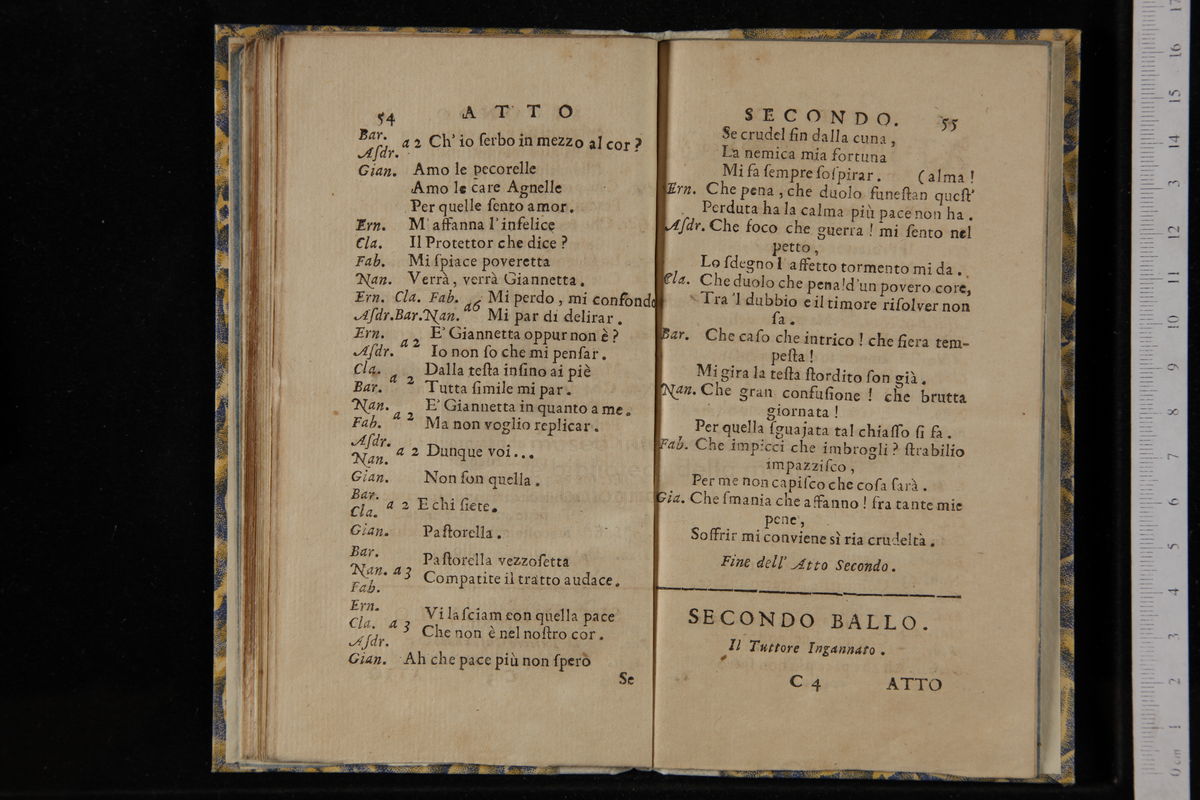 54 ATTO
Bar.
Aſdr. a 2 Ch' io ſerbo in mezzo al cor?
Gian. Amo le pecorelle
Amo le care Agnelle
Per quelle ſento amor.
Ern. M' affanna l' infelice
Cla. Il Protettor che dice?
Fab. Mi ſpiace poveretta
Nan. Verrà, verrà Giannetta.
Ern. Cla. Fab. a6 Mi perdo, mi confondo
Aſdr. Bar. Nan. Mi par di delirar.
Ern. a 2 E' Giannetta oppur non è?
Aſdr. Io non ſo che mi penſar.
Cla. a 2 Dalla teſta inſino ai piè
Bar. Tutta ſimile mi par.
Nan. a 2 E' Giannetta in quanto a me.
Fab. Ma non voglio replicar.
Aſdr.
Nan. a 2 Dunque voi...
Gian. Non ſon quella.
Bar.
Cla. a 2 E chi ſiete.
Gian. Paſtorella.
Bar.
Nan. a 3 Paſtorella vezzoſetta
Fab. Compatite il tratto audace.
Ern.
Cla. a 3 Vi laſciam con quella pace
Aſdr. Che non è nel noſtro cor.
Gian. Ah che pace più non ſpero
Se
SECONDO. 55
Se crudel ſin dalla cuna,
La nemica mia fortuna
Mi fa ſempre ſoſpirar. (alma!
Ern. Che pena, che duolo funeſtan queſt'
Perduta ha la calma più pace non ha.
Aſdr. Che foco che guerra! mi ſento nel
petto,
Lo ſdegno l' affetto tormento mi da.
Cla. Che duolo che pena! d'un povero core,
Tra 'l dubbio e il timore riſolver non
ſa.
Bar. Che caſo che intrico! che fiera tem-
peſta!
Mi gira la teſta ſtordito ſon già.
Nan. Che gran confuſione! che brutta
giornata!
Per quella ſguajata tal chiaſſo ſi fa.
Fab. Che impicci che imbrogli? ſtrabilio
impazziſco,
Per me non capiſco che coſa ſarà.
Gia. Che ſmania che affanno! fra tante mie
pene,
Soffrir mi conviene sì ria crudeltà.
Fine dell' Atto Secondo.
SECONDO BALLO.
Il Tuttore Ingannato.
C 4 ATTO